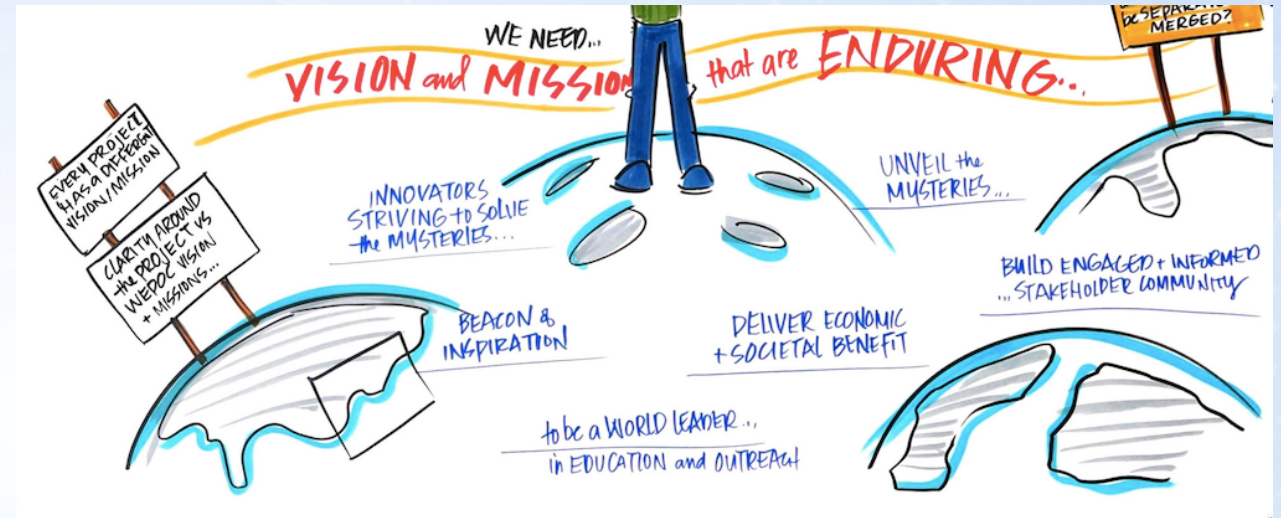 WE NEED...
VISION and MISSION that are ENDURING...
be SEPARATE
MERGED?
EVERY PROJECT
HAS a DIFFERENT
VISION/MISSION
CLARITY AROUND
the PROJECT VS
WEPOC VISION
+ MISSIONS...
INNOVATORS
STRIVING to SOLVE
the MYSTERIES...
UNVEIL the
MYSTERIES...
BUILD ENGAGED + INFORMED
...STAKEHOLDER COMMUNITY
BEACON of
INSPIRATION
DELIVER ECONOMIC
+ SOCIETAL BENEFIT
to be a WORLD LEADER...
in EDUCATION and OUTREACH